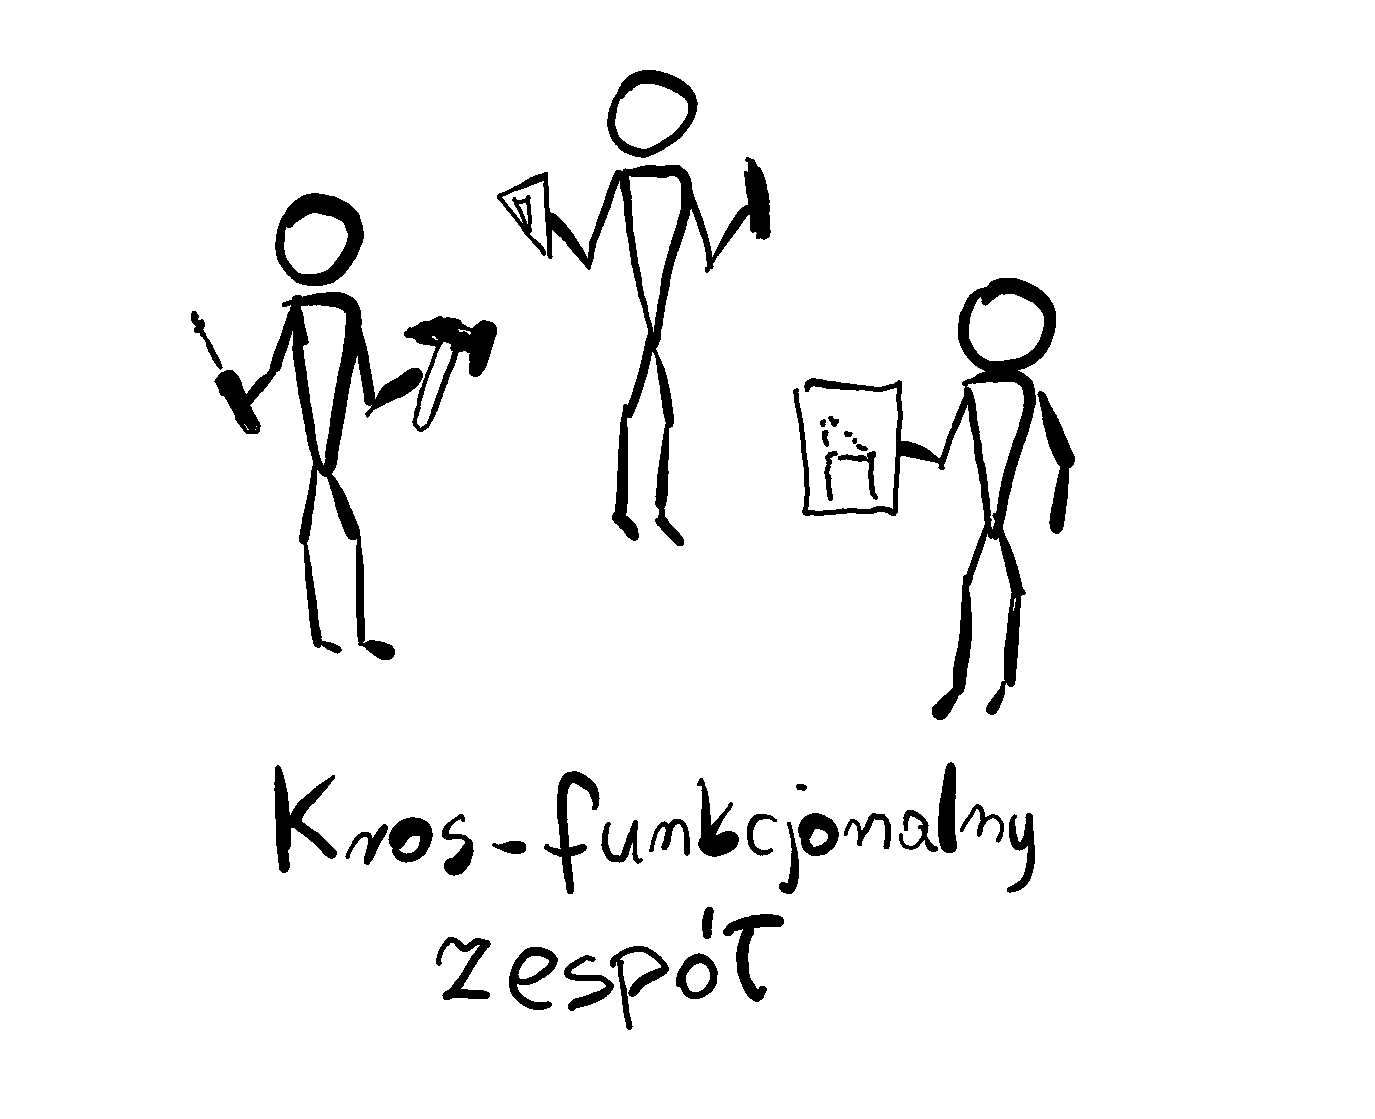 Kros-funkcjonalny
zespół